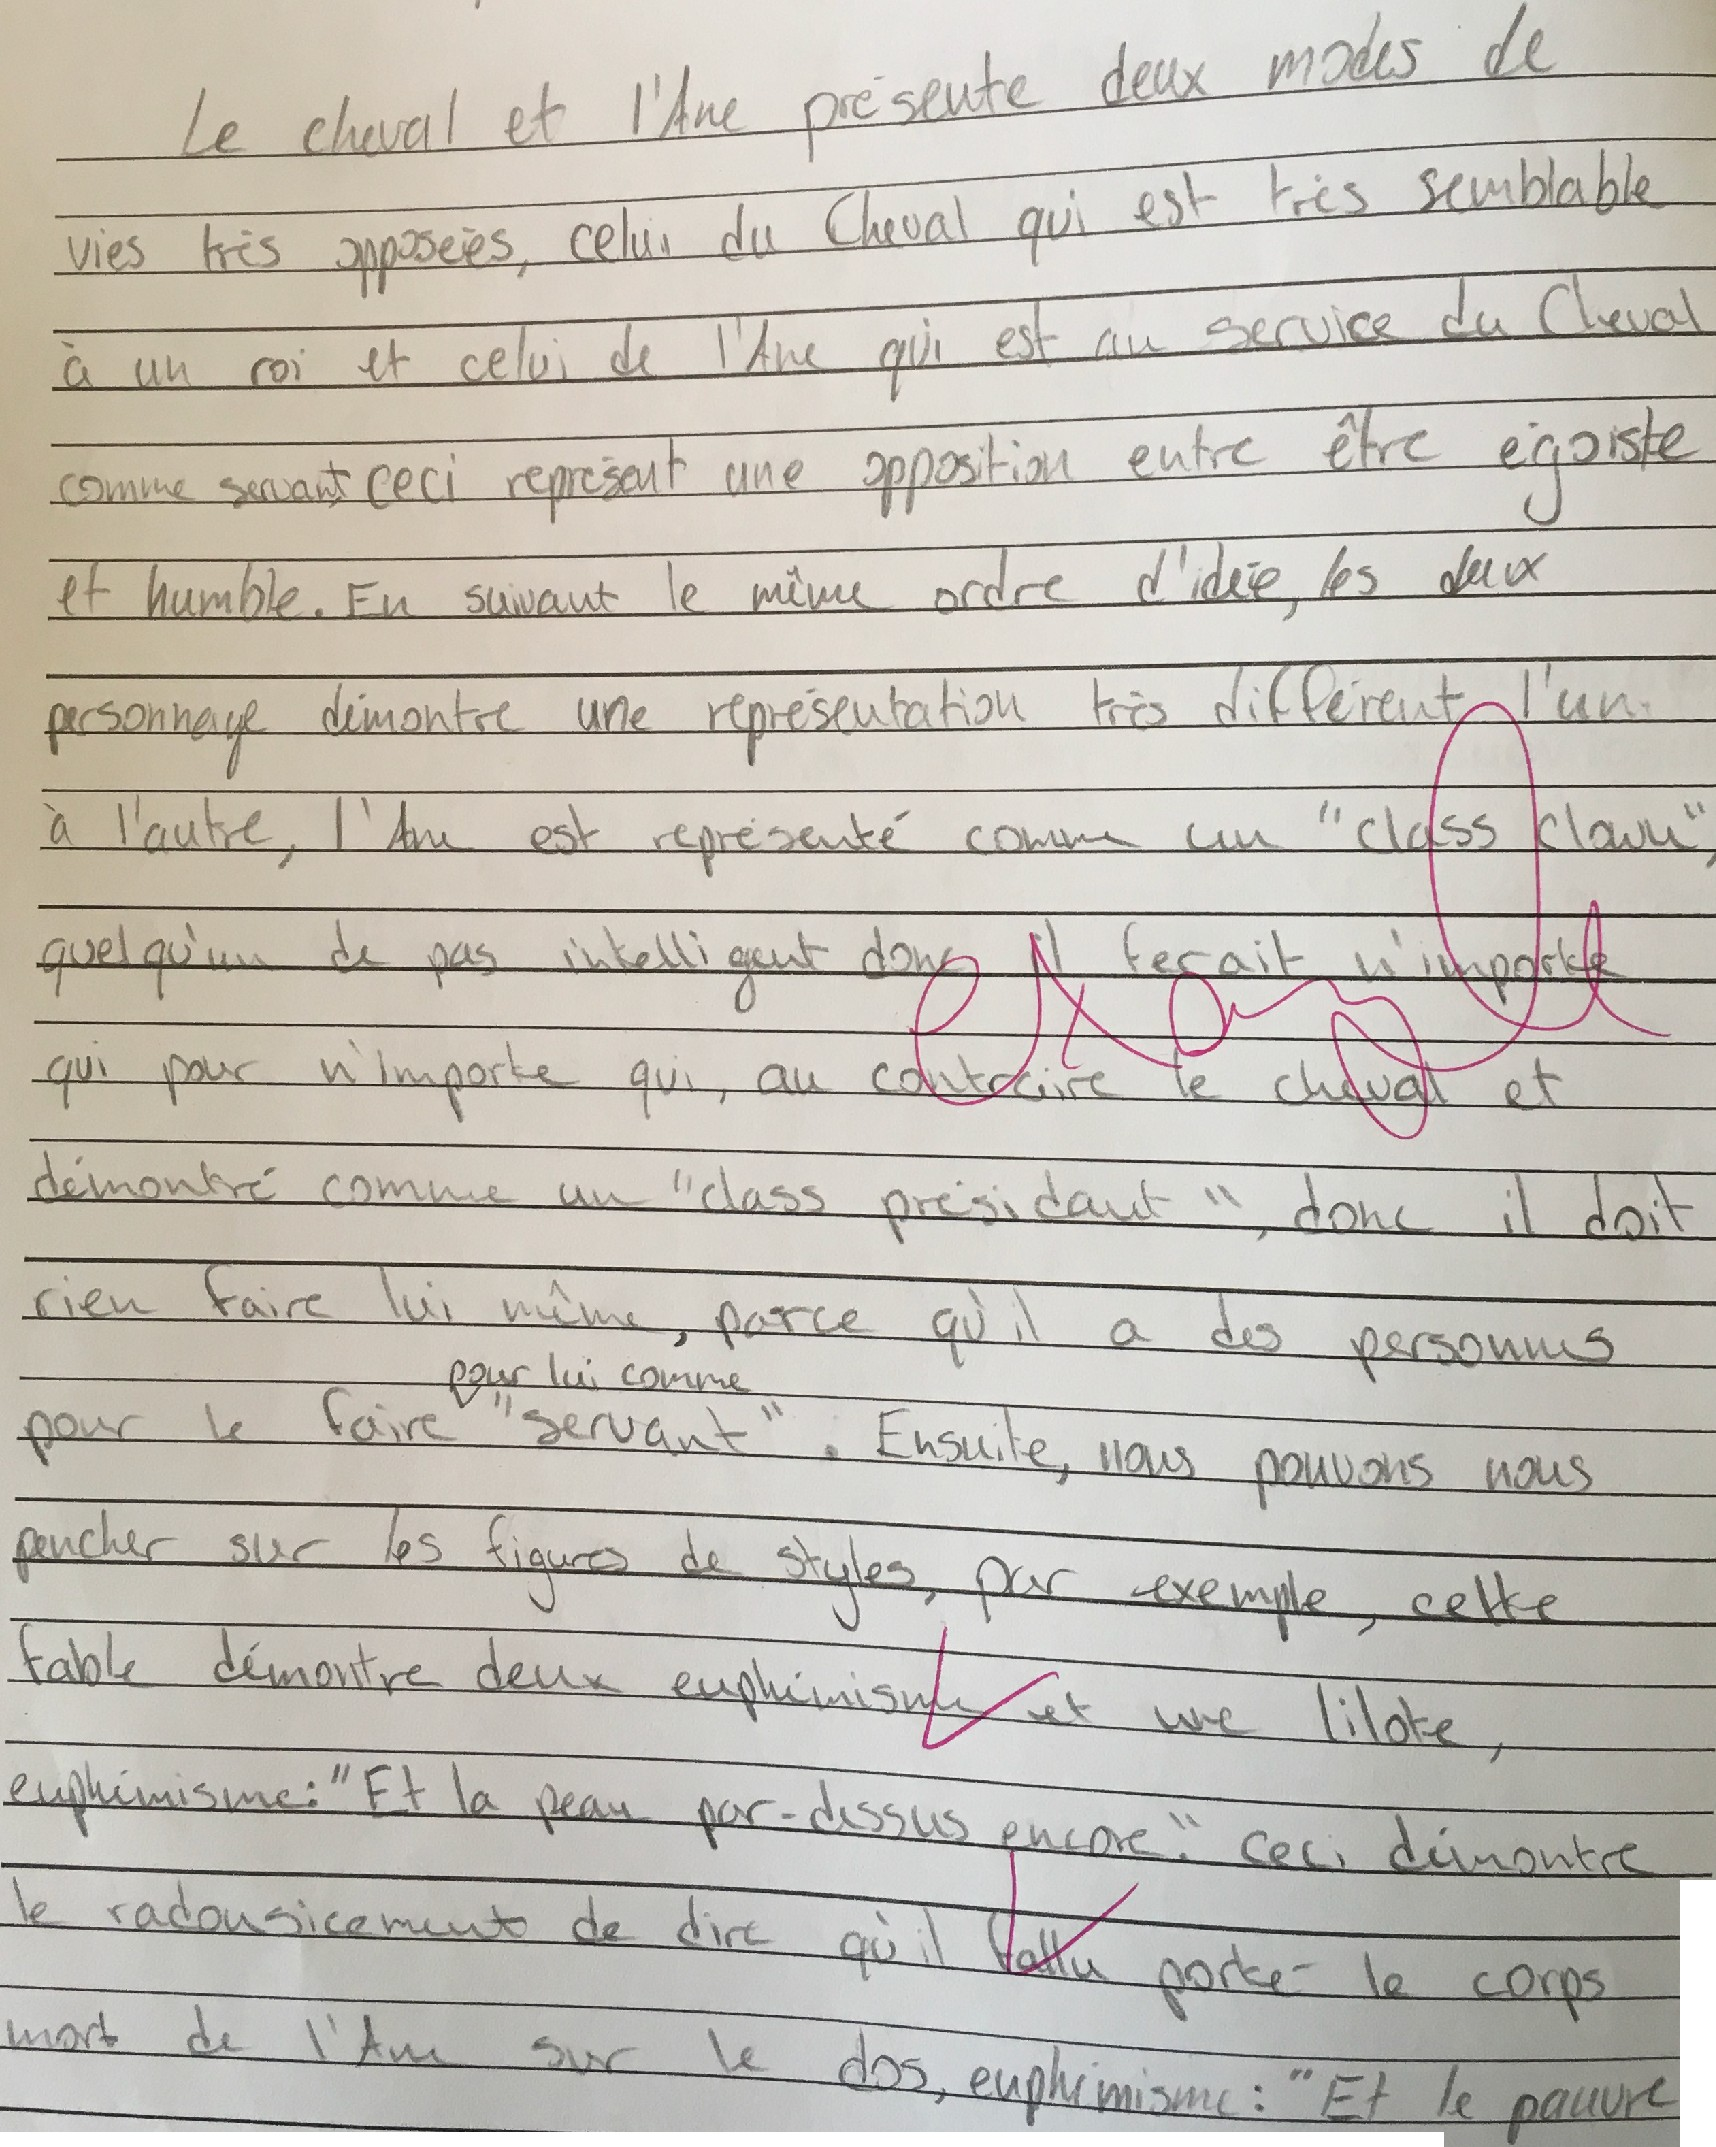 Le cheval et l'Ane présente deux modes de
vies très opposées, celui du Cheval qui est très semblable
à un roi et celui de l'Ane qui est au service du Cheval
comme servant, ceci représent une opposition entre être égoiste
et humble. En suivant le même ordre d'idée, les deux
personnage démontre une représentation très différent l'un
à l'autre, l'Ane est représenté comme un "class clown",
quelqu'un de pas intelligent donc il ferait n'importe
qui pour n'importe qui, au contraire le cheval et
démontré comme un "class présidant", donc il doit
rien faire lui même, parce qu'il a des personnes
pour lui comme
pour le faire "servant". Ensuite, nous pouvons nous
pencher sur les figures de styles, par exemple, cette
fable démontre deux euphémisme et une lilote,
euphémisme: "Et la peau par-dessus encore." ceci démontre
le radousicement de dire qu'il fallu porter le corps
mort de l'Ane sur le dos, euphémisme: "Et le pauvre